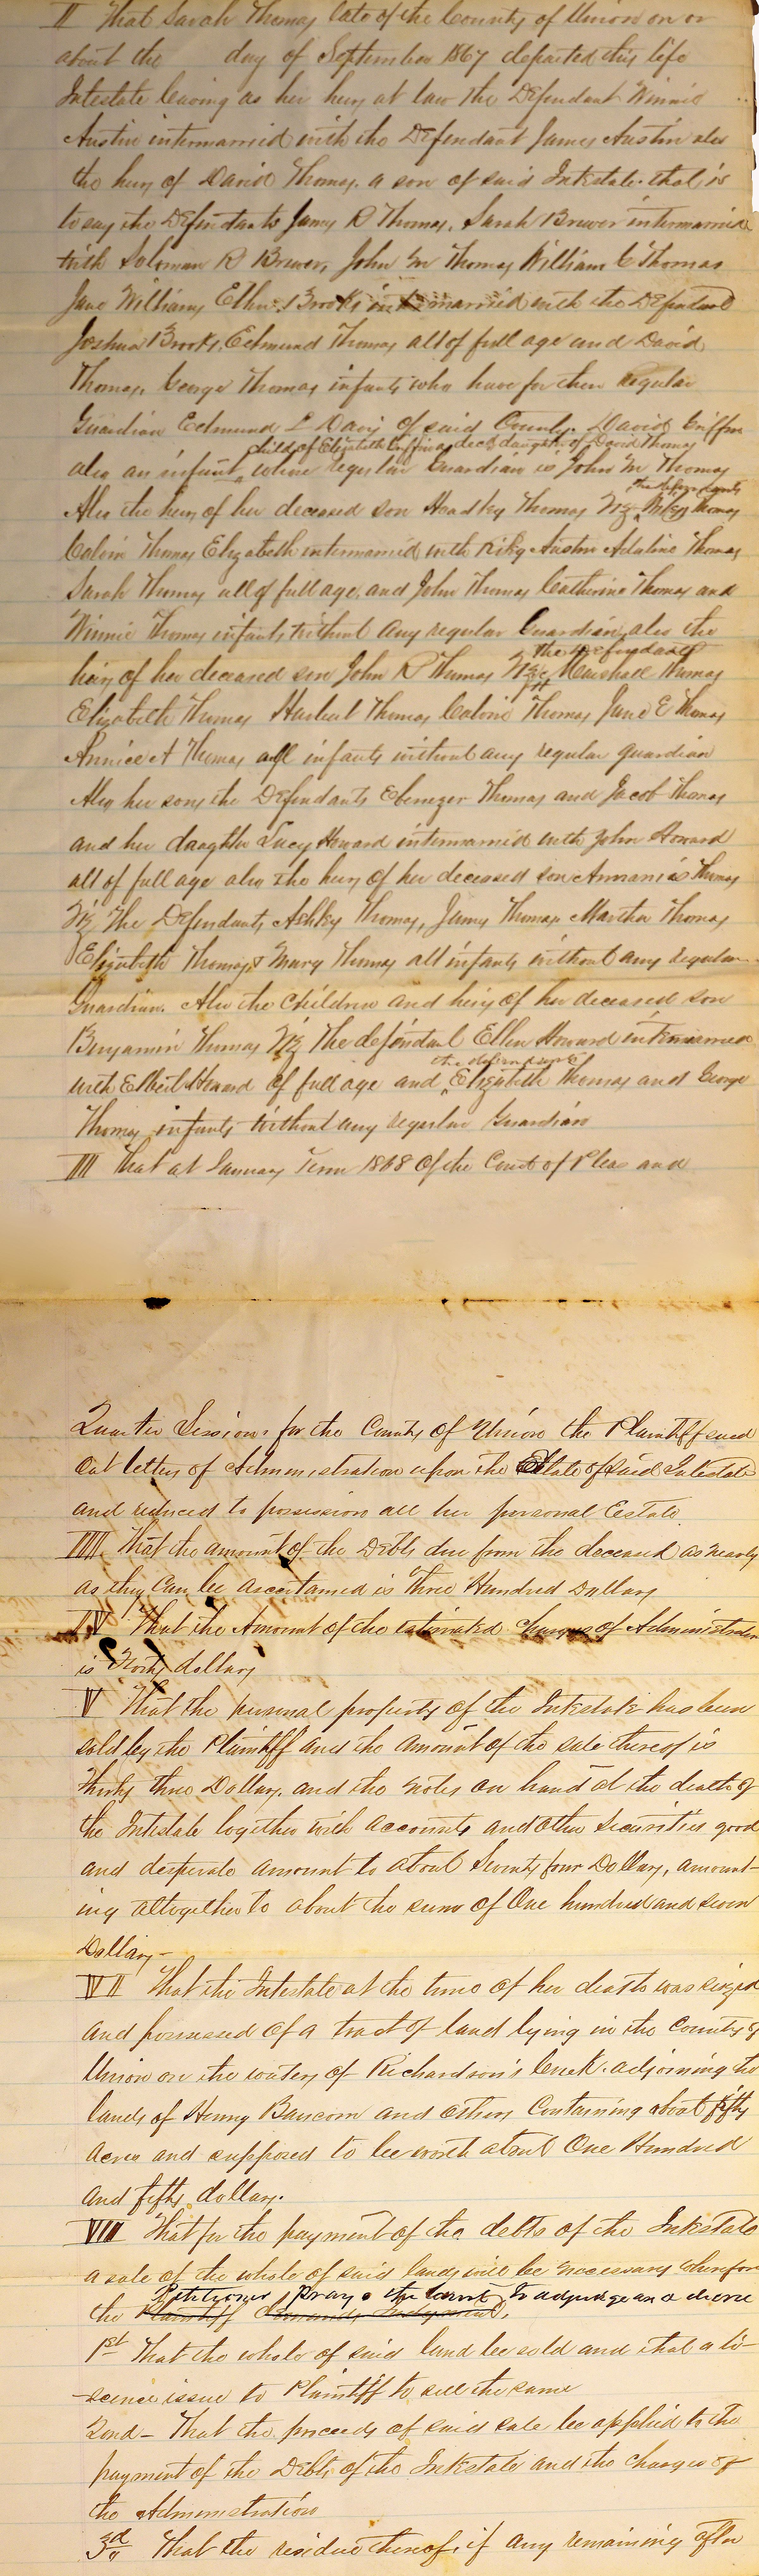 II That Sarah Thomas late of the County of Union on or
about the day of September 1867 departed this life
Intestate leaving as her heirs at law the Defendant Winnie
Austin intermarried with the Defendant James Austin also
the heirs of David Thomas, a son of said Intestate. that is
to say the Defendants James R Thomas, Sarah Brewer intermarried
with Solomon R Brewer, John M Thomas William C Thomas
Jane Williams, Ellen Brooks intermarried with the Defendant
Joshua Brooks, Edmund Thomas all of full age and David
Thomas, George Thomas infants who have for their regular
Guardian Edmund L Davis of said County. David Griffin
child of Elizabeth Griffin a decd daughter of David Thomas
also an infant whose regular Guardian is John M Thomas
the defendants
Also the heirs of her deceased son Headley Thomas Viz Thomas
Calvin Thomas Elizabeth intermarried with Riley Austin Adaline Thomas
Sarah Thomas all of full age, and John Thomas Catherine Thomas and
Winnie Thomas infants without any regular Guardian, also the
The defendants
heirs of her deceased son John R Thomas Viz Marshall Thomas
Elizabeth Thomas Thomas Calvin Thomas Jane E Thomas
Annice A Thomas all infants without any regular guardian
Also her sons the Defendants Ebenezer Thomas and Jacob Thomas
and her daughter Lucy Howard intermarried with John Howard
all of full age also the heirs of her deceased son Annanias Thomas
Viz The Defendants Ashley Thomas, James Thomas Martha Thomas
Elizabeth Thomas & Mary Thomas all infants without any regular
Guardian. Also the Children and heirs of her deceased son
Benjamin Thomas Viz The defendant Ellen Howard intermarried
the defendants
with Elbert Howard of full age and Elizabeth Thomas and George
Thomas infants without any regular Guardian
III That at January Term 1868 of the Court of Pleas and
Quarter Sessions for the County of Union the Plaintiff sued
out letters of Administration upon the Estate of said Intestate
and reduced to possession all her personal Estate
IIII That the amount of the Debts due from the deceased as nearly
as they can be ascertained is Three Hundred Dollars
IV That the Amount of the estimated charges of Administration
is dollars
V That the personal property of the Intestate has been
sold by the Plaintiff and the amount of the sale thereof is
thirty three Dollars, and the notes on hand at the death of
the Intestate together with accounts and other Securities good
and desperate amount to about Seventy four Dollars, amount-
ing altogether to about the sum of One hundred and seven
Dollars -
VII That the Intestate at the time of her death was seized
and possessed of a tract of land lying in the County of
Union on the waters of Richardson's Creek, adjoining the
lands of Henry Baucom and others Containing about fifty
acres and supposed to be worth about One Hundred
and fifty dollars.
VIII That for the payment of the debts of the Intestate
a sale of the whole of said lands will be necessary wherefore
Petitioner prays the Court to adjudge and decree
the Plaintiff demands Judgment,
1st That the whole of said land be sold and that a li-
-scence issue to Plaintiff to sell the same
2nd - That the proceeds of said sale be applied to the
payment of the Debts of the Intestate and the charges of
the Administration
3rd That the residue thereof, if any remaining after